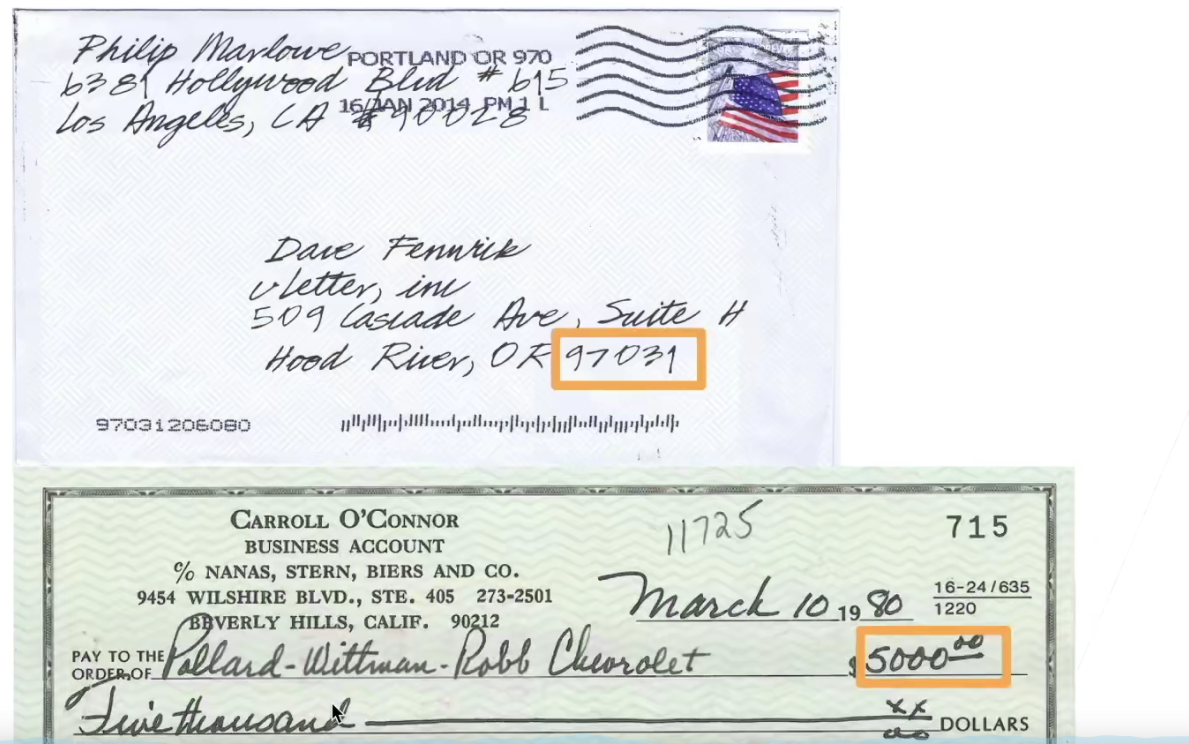 Philip Marlowe PORTLAND OR 970
6381 Hollywood Blvd # 615
16 JAN 2014 PM 1 L
Los Angeles, CA 90028
Dave Fennrik
vLetter, inc
509 Cascade Ave, Suite H
Hood River, OR 97031
97031206080
CARROLL O'CONNOR
BUSINESS ACCOUNT
% NANAS, STERN, BIERS AND CO.
9454 WILSHIRE BLVD., STE. 405 273-2501
BEVERLY HILLS, CALIF. 90212
11725
715
March 10 1980
16-24/635
1220
PAY TO THE
ORDER OF Pollard-Wittman-Robb Chevrolet $5000.00
Five thousand xx/00 DOLLARS